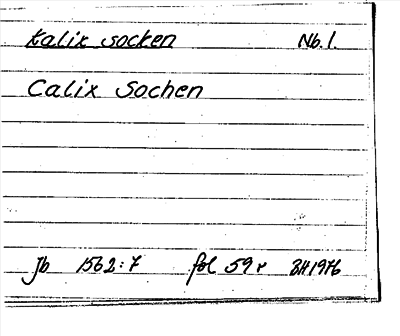 Kalix socken Nb.l.
Calix Sochen
Jb 1562:7 fol 59 r BH 1976